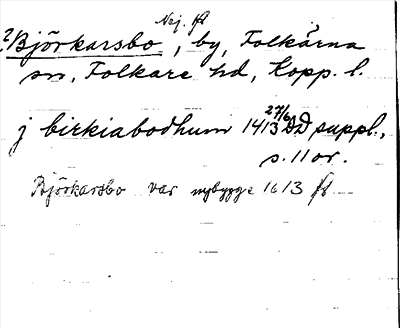 Nej. ft
? Björkarsbo, by, Folkärna
sn, Folkare hd, Kopp. l.
j birkiabodhum 1413 27/6 DD suppl.,
s. 11 or.
Björkarsbo var nybygge 1613 ft